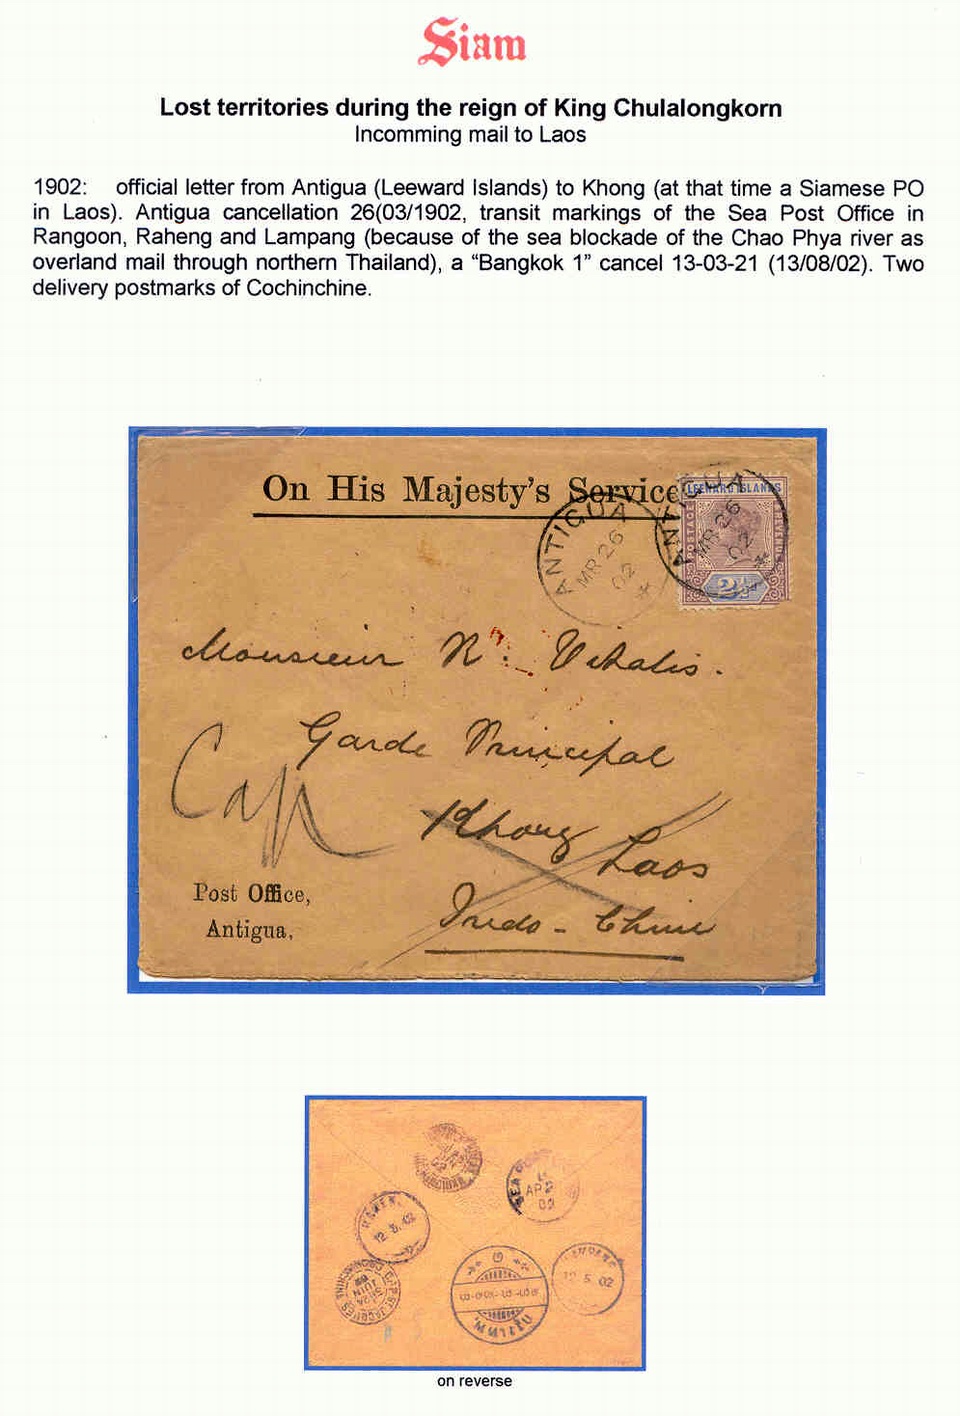 Siam
Lost territories during the reign of King Chulalongkorn
Incomming mail to Laos
1902: official letter from Antigua (Leeward Islands) to Khong (at that time a Siamese PO
in Laos). Antigua cancellation 26(03/1902, transit markings of the Sea Post Office in
Rangoon, Raheng and Lampang (because of the sea blockade of the Chao Phya river as
overland mail through northern Thailand), a “Bangkok 1” cancel 13-03-21 (13/08/02). Two
delivery postmarks of Cochinchine.
On His Majesty's Service
LEEWARD ISLANDS
POSTAGE
REVENUE
2½d
ANTIGUA
MR 26
02
ANTIGUA
MR 26
02
Monsieur N. Vitalis.
Garde Principal
Khong Laos
Indo-Chine
Post Office,
Antigua.
SEA
AP 2
02
12.5.02
12 5 02
JUIN
on reverse